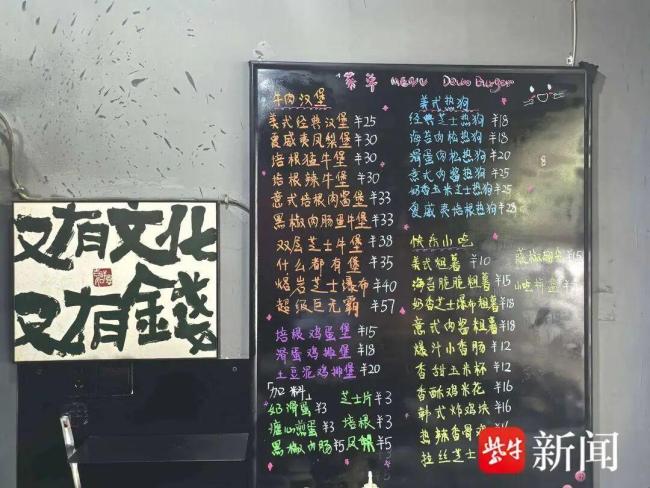 菜单 MENU Down Burger
牛肉汉堡
美式经典汉堡 ¥25
夏威夷凤梨堡 ¥30
培根猛牛堡 ¥30
培根辣牛堡 ¥30
意式培根肉酱堡 ¥33
黑椒肉肠重牛堡 ¥33
双层芝士牛堡 ¥38
什么都有堡 ¥35
熔岩芝士瀑布 ¥40
超级巨无霸 ¥57
培根鸡蛋堡 ¥15
滑蛋鸡排堡 ¥18
土豆泥鸡排堡 ¥20
「加料」
奶滑蛋 ¥3 芝士片 ¥3
溏心煎蛋 ¥3 培根 ¥3
黑椒肉肠 ¥5 凤梨 ¥5
美式热狗
经典芝士热狗 ¥18
海苔肉松热狗 ¥18
滑蛋肉松热狗 ¥20
意式肉酱热狗 ¥25
奶香玉米芝士热狗 ¥25
夏威夷培根热狗 ¥28
快乐小吃
美式粗薯 ¥10
海苔脆脆粗薯 ¥15
奶香芝士瀑布粗薯 ¥18
意式肉酱粗薯 ¥18
爆汁小香肠 ¥12
香甜玉米杯 ¥12
香酥鸡米花 ¥16
韩式炸鸡块 ¥16
热辣香骨鸡
拉丝芝士
又有文化
又有錢
紫牛新闻